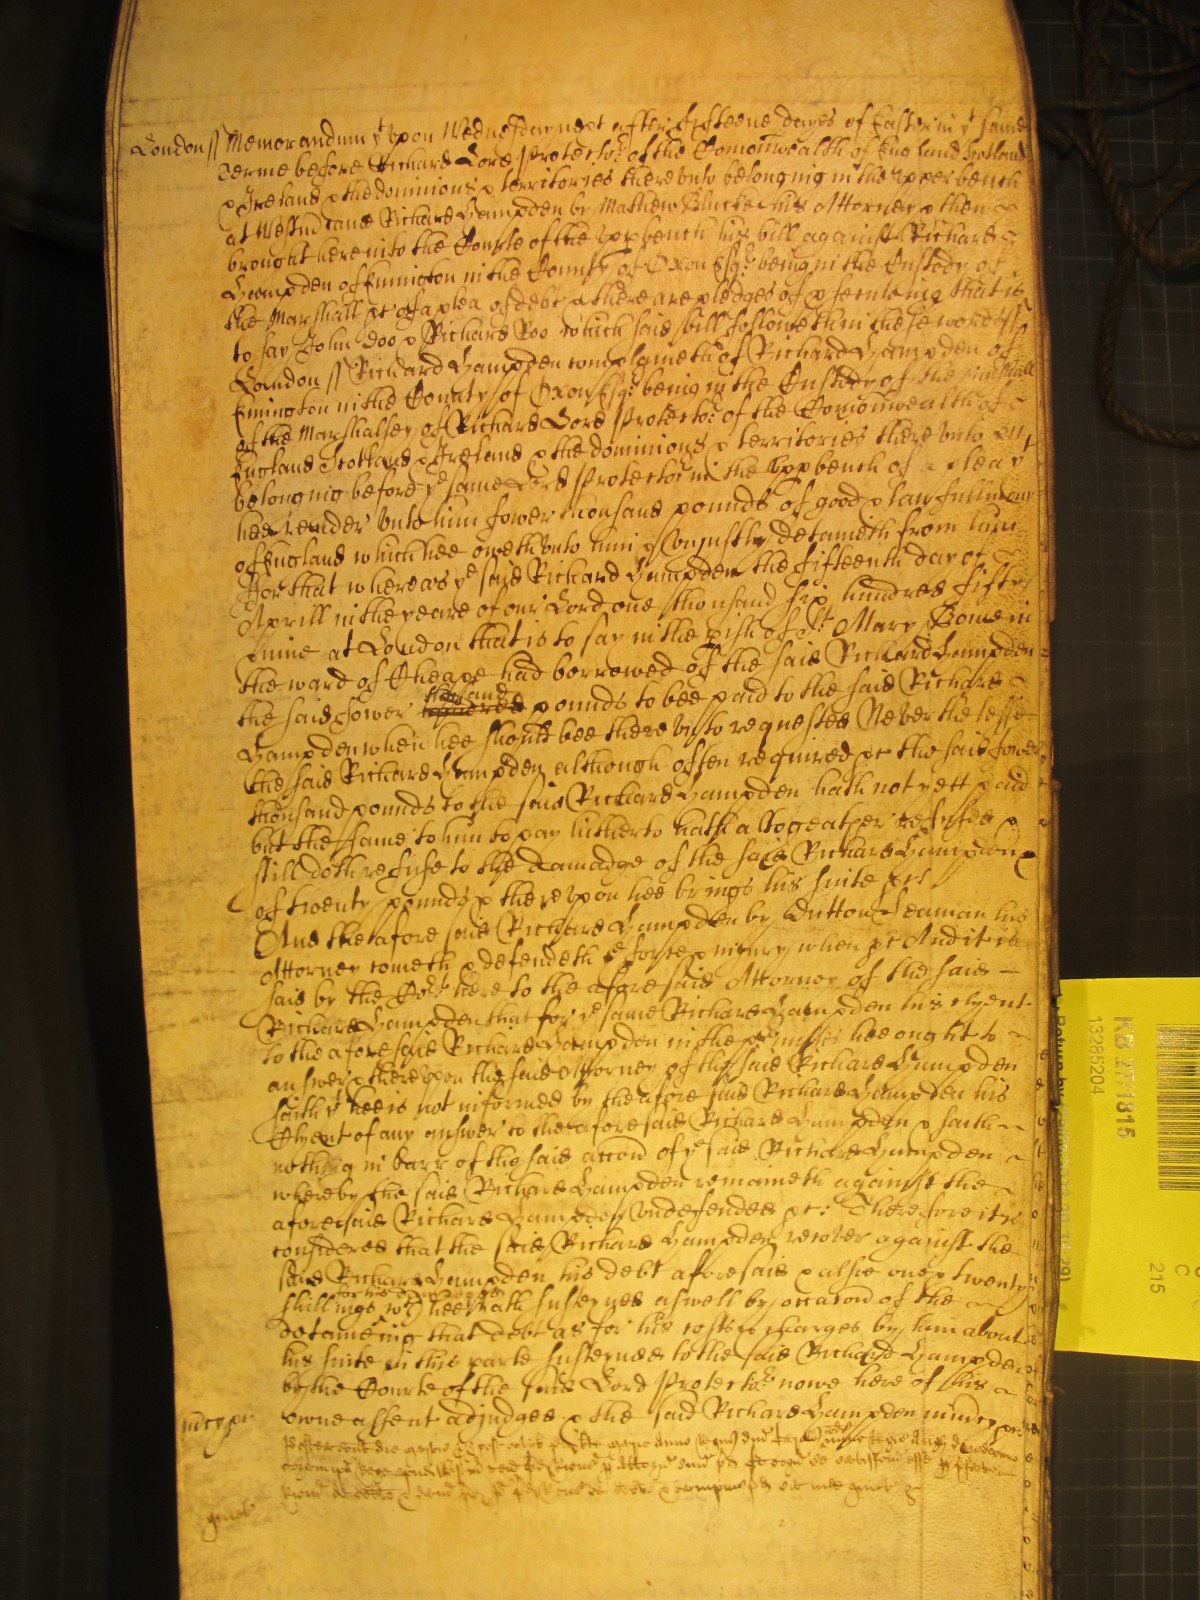 London ss Memorandum yt upon Wednesday next after fifteene dayes of Easter in ye same
Terme before Richard Lord Protector of the Comonwealth of England Scotland
& Ireland & the dominions & territories there unto belonging in the upper bench
at Westm came Richard Hampden by Mathew his Attorney & then
brought here into the Courte of the upp bench his bill against Richard
Hampden of Emington in the County of Oxon Esqr being in the Custody of
the Marshall &c of a plea of debt & there are pledges of p'secuting that is
to say John Doo & Richard Roo which said bill followeth in these words ss
London ss Richard Hampden complaineth of Richard Hampden of
Emington in the County of Oxon Esqr being in the Custody of the Marshall
of the Marshalsey of Richard Lord Protector of the Comonwealth of
England Scotland & Ireland & the dominions & territories there unto
belonging before ye same Lord Protector in the upp bench of a plea yt
hee render unto him fower thousand pounds of good & lawfull mony
of England which hee oweth unto him & unjustly detaineth from him
For that whereas ye said Richard Hampden the fifteenth day of
Aprill in the yeare of our Lord one thousand six hundred fifty
nine at London that is to say in the pish of St Mary Bowe in
the ward of Cheape had borrowed of the said Richard Hampden
the said fower thousand pounds to bee paid to the said Richard
Hampden when hee should bee there unto requested Never the lesse
the said Richard Hampden although often required &c the said fower
thousand pounds to the said Richard Hampden hath not yett paid
but the same to him to pay hitherto hath altogeather refused &
still doth refuse to the damadge of the said Richard Hampden
of twenty pounds & thereupon hee brings his suite &c
And the aforesaid Richard Hampden by Dutton Seaman his
Attorney cometh & defendeth ye force & iniury when &c And it is
said by the Court here to the aforesaid Attorney of the said
Richard Hampden that for ye same Richard Hampden his clyent
to the aforesaid Richard Hampden in the premisses hee ought to
answer & thereupon the said Attorney of the said Richard Hampden
saith yt hee is not informed by the aforesaid Richard Hampden his
Clyent of any answer to the aforesaid Richard Hampden & saith
nothing in barr of the said accon of ye said Richard Hampden
whereby the said Richard Hampden remaineth against the
aforesaid Richard Hampden undefended &c: Therefore it is
considered that the said Richard Hampden recover against the
said Richard Hampden his debt aforesaid & alsoe one & twenty
shillings for his damages wch hee hath susteyned aswell by occacon of the
detaineing that debt as for his costs & charges by him about
his suite in this parte susteyned to the said Richard Hampden
by the Courte of the said Lord Protector nowe here of his
mercy &c owne assent adjudged & the said Richard Hampden in mercy &c